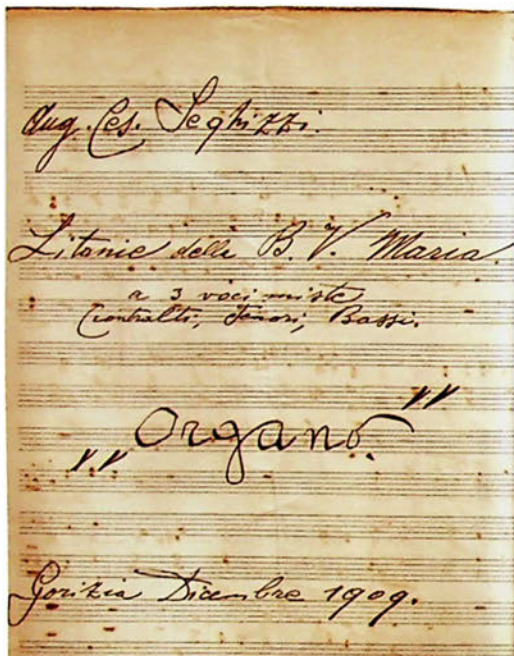 Aug. Ces. Seghizzi.
Litanie della B. V. Maria.
a 3 voci miste
(Contralti, Tenori, Bassi.
„Organo.”
Gorizia Dicembre 1909.